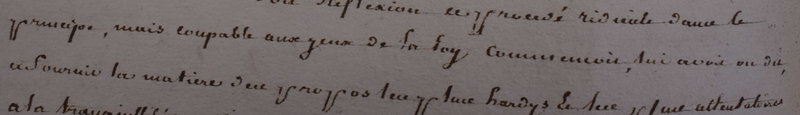 reflexion ce procedé ridicule dans le
principe, mais coupable aux yeux de la loy commencoit, lui avoit on dit,
a fournir la matiere des propos les plus hardys & les plus attentatoires
a la